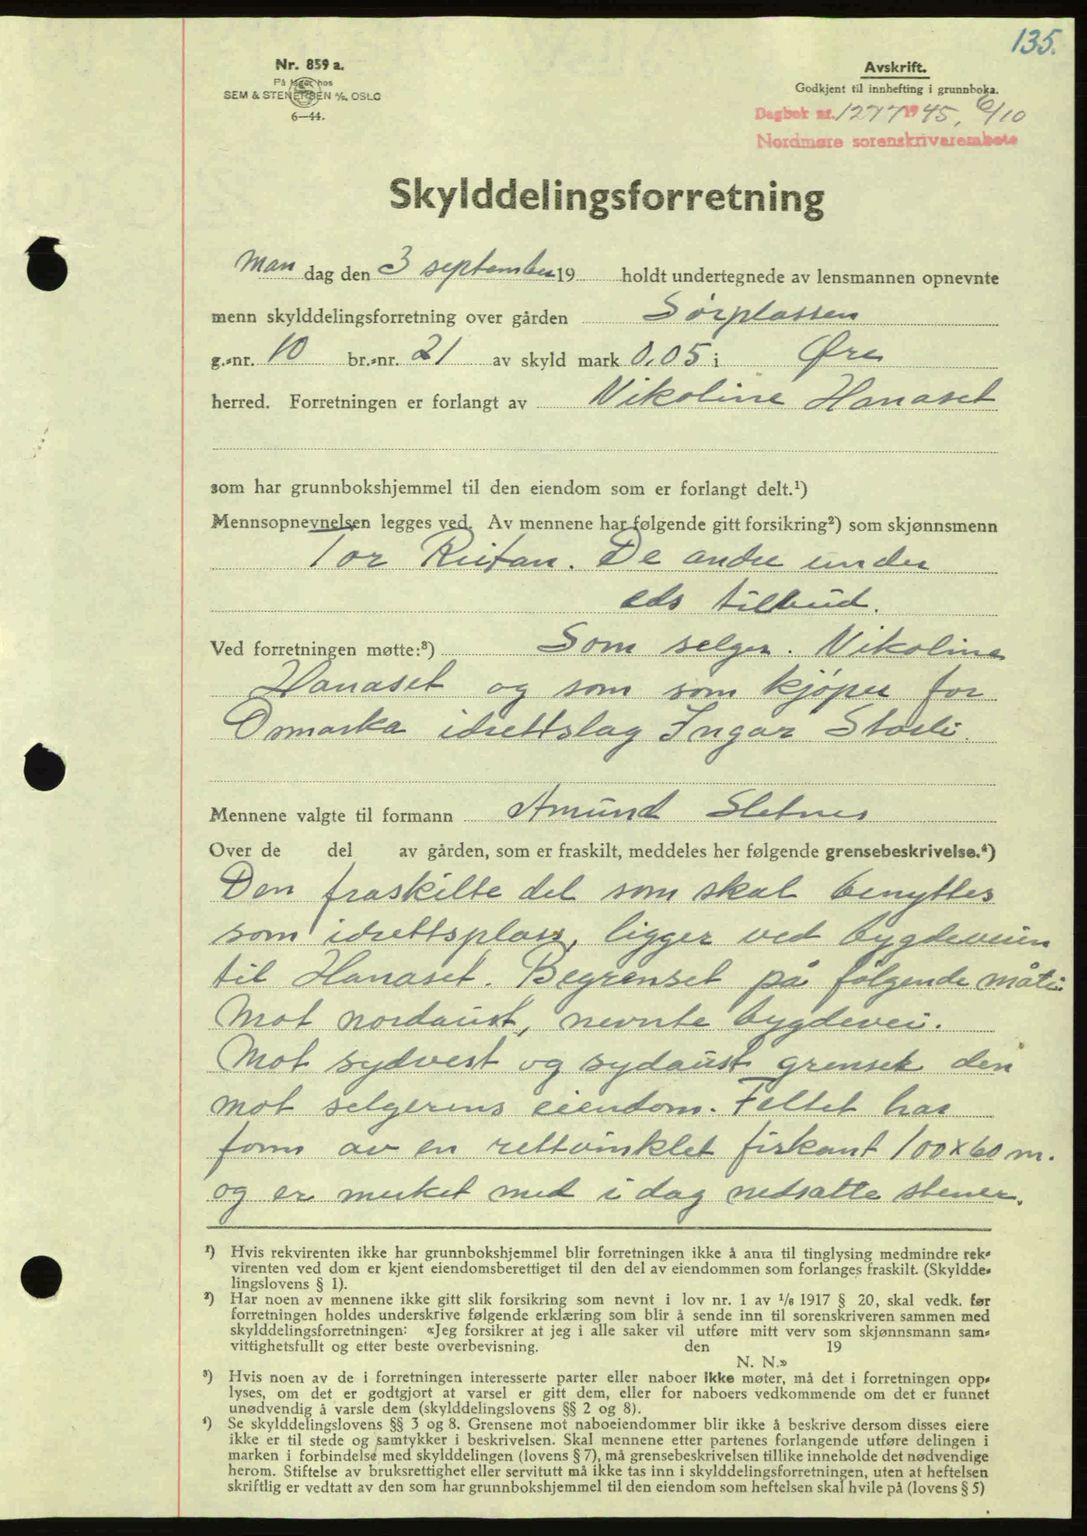 135.
Nr. 859 a.
På lager hos
SEM & STENERSEN A/S, OSLO
6—44.
Avskrift.
Godkjent til innhefting i grunnboka.
Dagbok nr. 1277 1945, 6/10
Nordmøre sorenskrivarembete
Skylddelingsforretning
Man dag den 3 september 19 holdt undertegnede av lensmannen opnevnte
menn skylddelingsforretning over gården Sørplassen
g.-nr. 10 br.-nr. 21 av skyld mark 0,05 i Øre
herred. Forretningen er forlangt av Nikoline Hanaset
som har grunnbokshjemmel til den eiendom som er forlangt delt.¹)
Mennsopnevnelsen legges ved. Av mennene har følgende gitt forsikring²) som skjønnsmenn
Tor Reitan. De andre under
eds tilbud.
Ved forretningen møtte:³) Som selger. Nikoline
Hanaset og som som kjøper for
Osmarka idrettslag Ingar Storli.
Mennene valgte til formann Amund Sletnes
Over de del av gården, som er fraskilt, meddeles her følgende grensebeskrivelse.⁴)
Den fraskilte del som skal benyttes
som idrettsplass, ligger ved bygdeveien
til Hanaset. Begrenset på følgende måte:
Mot nordaust, nevnte bygdevei.
Mot sydvest og sydaust grenser den
mot selgerens eiendom. Feltet har
form av en rettvinklet firkant 100 x 60 m.
og er merket med i dag nedsatte stener.
¹) Hvis rekvirenten ikke har grunnbokshjemmel blir forretningen ikke å anta til tinglysing medmindre rek-
virenten ved dom er kjent eiendomsberettiget til den del av eiendommen som forlanges fraskilt. (Skyldde-
lingslovens § 1).
²) Har noen av mennene ikke gitt slik forsikring som nevnt i lov nr. 1 av 1/6 1917 § 20, skal vedk. før
forretningen holdes underskrive følgende erklæring som blir å sende inn til sorenskriveren sammen med
skylddelingsforretningen: «Jeg forsikrer at jeg i alle saker vil utføre mitt verv som skjønnsmann sam-
vittighetsfullt og etter beste overbevisning. den 19
N. N.»
³) Hvis noen av de i forretningen interesserte parter eller naboer ikke møter, må det i forretningen opp-
lyses, om det er godtgjort at varsel er gitt dem, eller for naboers vedkommende om det er funnet
unødvendig å varsle dem (skylddelingslovens §§ 2 og 8).
⁴) Se skylddelingslovens §§ 3 og 8. Grensene mot naboeiendommer blir ikke å beskrive dersom disses eiere
ikke er til stede og samtykker i beskrivelsen. Skal mennene etter partenes forlangende utføre delingen i
marken i forbindelse med skylddelingen (lovens § 7), må grensebeskrivelsen tillike inneholde det nødvendige
herom. Stiftelse av bruksrettighet eller servitutt må ikke tas inn i skylddelingsforretningen, uten at heftelsen
skriftlig er vedtatt av den som har grunnbokshjemmel til den eiendom som heftelsen skal hvile på (lovens § 5)